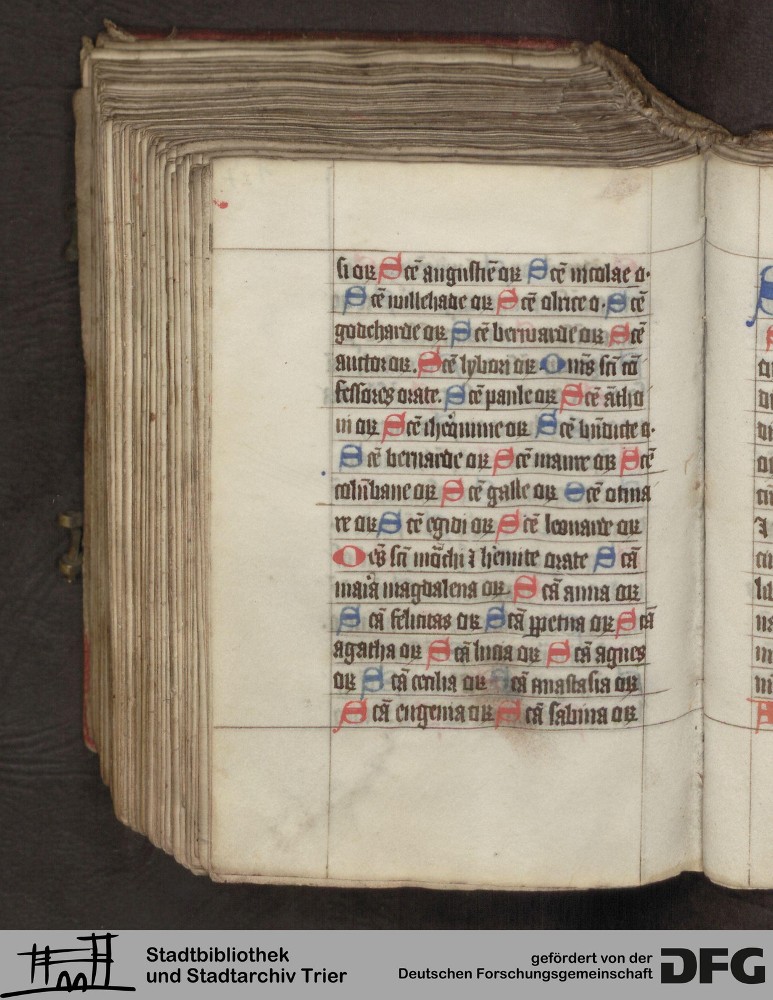 si or Scē augustīe or Scē nicolae o·
Scē willehade or Scē olrice o· Scē
godeharde or Scē berwarde or Scē
auctor or. Scē lybori or Om̄s sc̄i cō
fessores orate. Scē paule or Scē ātho
ni or Scē iheronime or Scē bn̄dicte o·
Scē bernarde or Scē maure or Scē
colūbane or Scē galle or Scē otma
re or Scē egidi or Scē leonarde or
Oēs sc̄i mōchi ⁊ hēmite orate Scā
maria magdalena or Scā anna or
Scā felicitas or Scā ꝑpetua or Scā
agatha or Scā lucia or Scā agnes
or Scā cecilia or Scā anastasia or
Scā eugenia or Scā sabina or
Stadtbibliothek
und Stadtarchiv Trier
gefördert von der
Deutschen Forschungsgemeinschaft
DFG